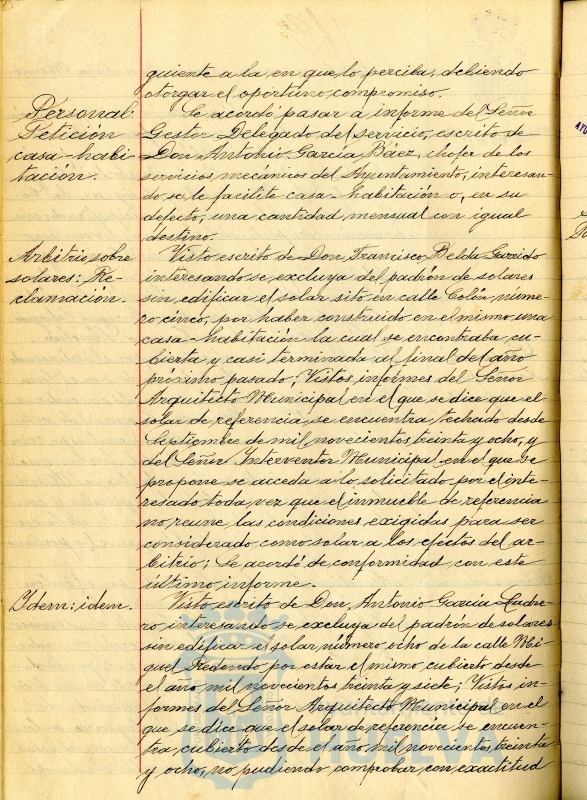 guiente a la en que lo perciba, debiendo
otorgar el oportuno compromiso.
Personal
Petición
casa-habi-
tación.
Se acordó pasar a informe del Señor
Gestor Delegado del servicio, escrito de
Don Antonio García Báez, chofer de los
servicios mecánicos del Ayuntamiento, interesan-
do se le facilite casa-habitación o, en su
defecto, una cantidad mensual con igual
destino.
Arbitrio sobre
solares: Re-
clamación.
Visto escrito de Don Francisco Belda Garrido
interesando se excluya del padrón de solares
sin edificar el solar sito en calle Colón, núme-
ro cinco, por haber construido en el mismo una
casa-habitación la cual se encontraba cu-
bierta y casi terminada al final del año
próximo pasado; Vistos informes del Señor
Arquitecto Municipal en el que se dice que el
solar de referencia, se encuentra techado desde
Septiembre de mil novecientos treinta y ocho, y
del Señor Interventor Municipal en el que se
propone se acceda a lo solicitado por el inte-
resado toda vez que el inmueble de referencia
no reune las condiciones exigidas para ser
considerado como solar a los efectos del ar-
bitrio; Se acordó de conformidad con este
último informe.
Idem: idem.
Visto escrito de Don Antonio García
ro, interesando se excluya del padrón de solares
sin edificar el solar número ocho de la calle Mi-
guel Redondo por estar el mismo cubierto desde
el año mil novecientos treinta y siete; Vistos in-
formes del Señor Arquitecto Municipal en el
que se dice que el solar de referencia se encuen-
tra cubierto desde el año mil novecientos treinta
y ocho, no pudiendo comprobar con exactitud
HUELVA